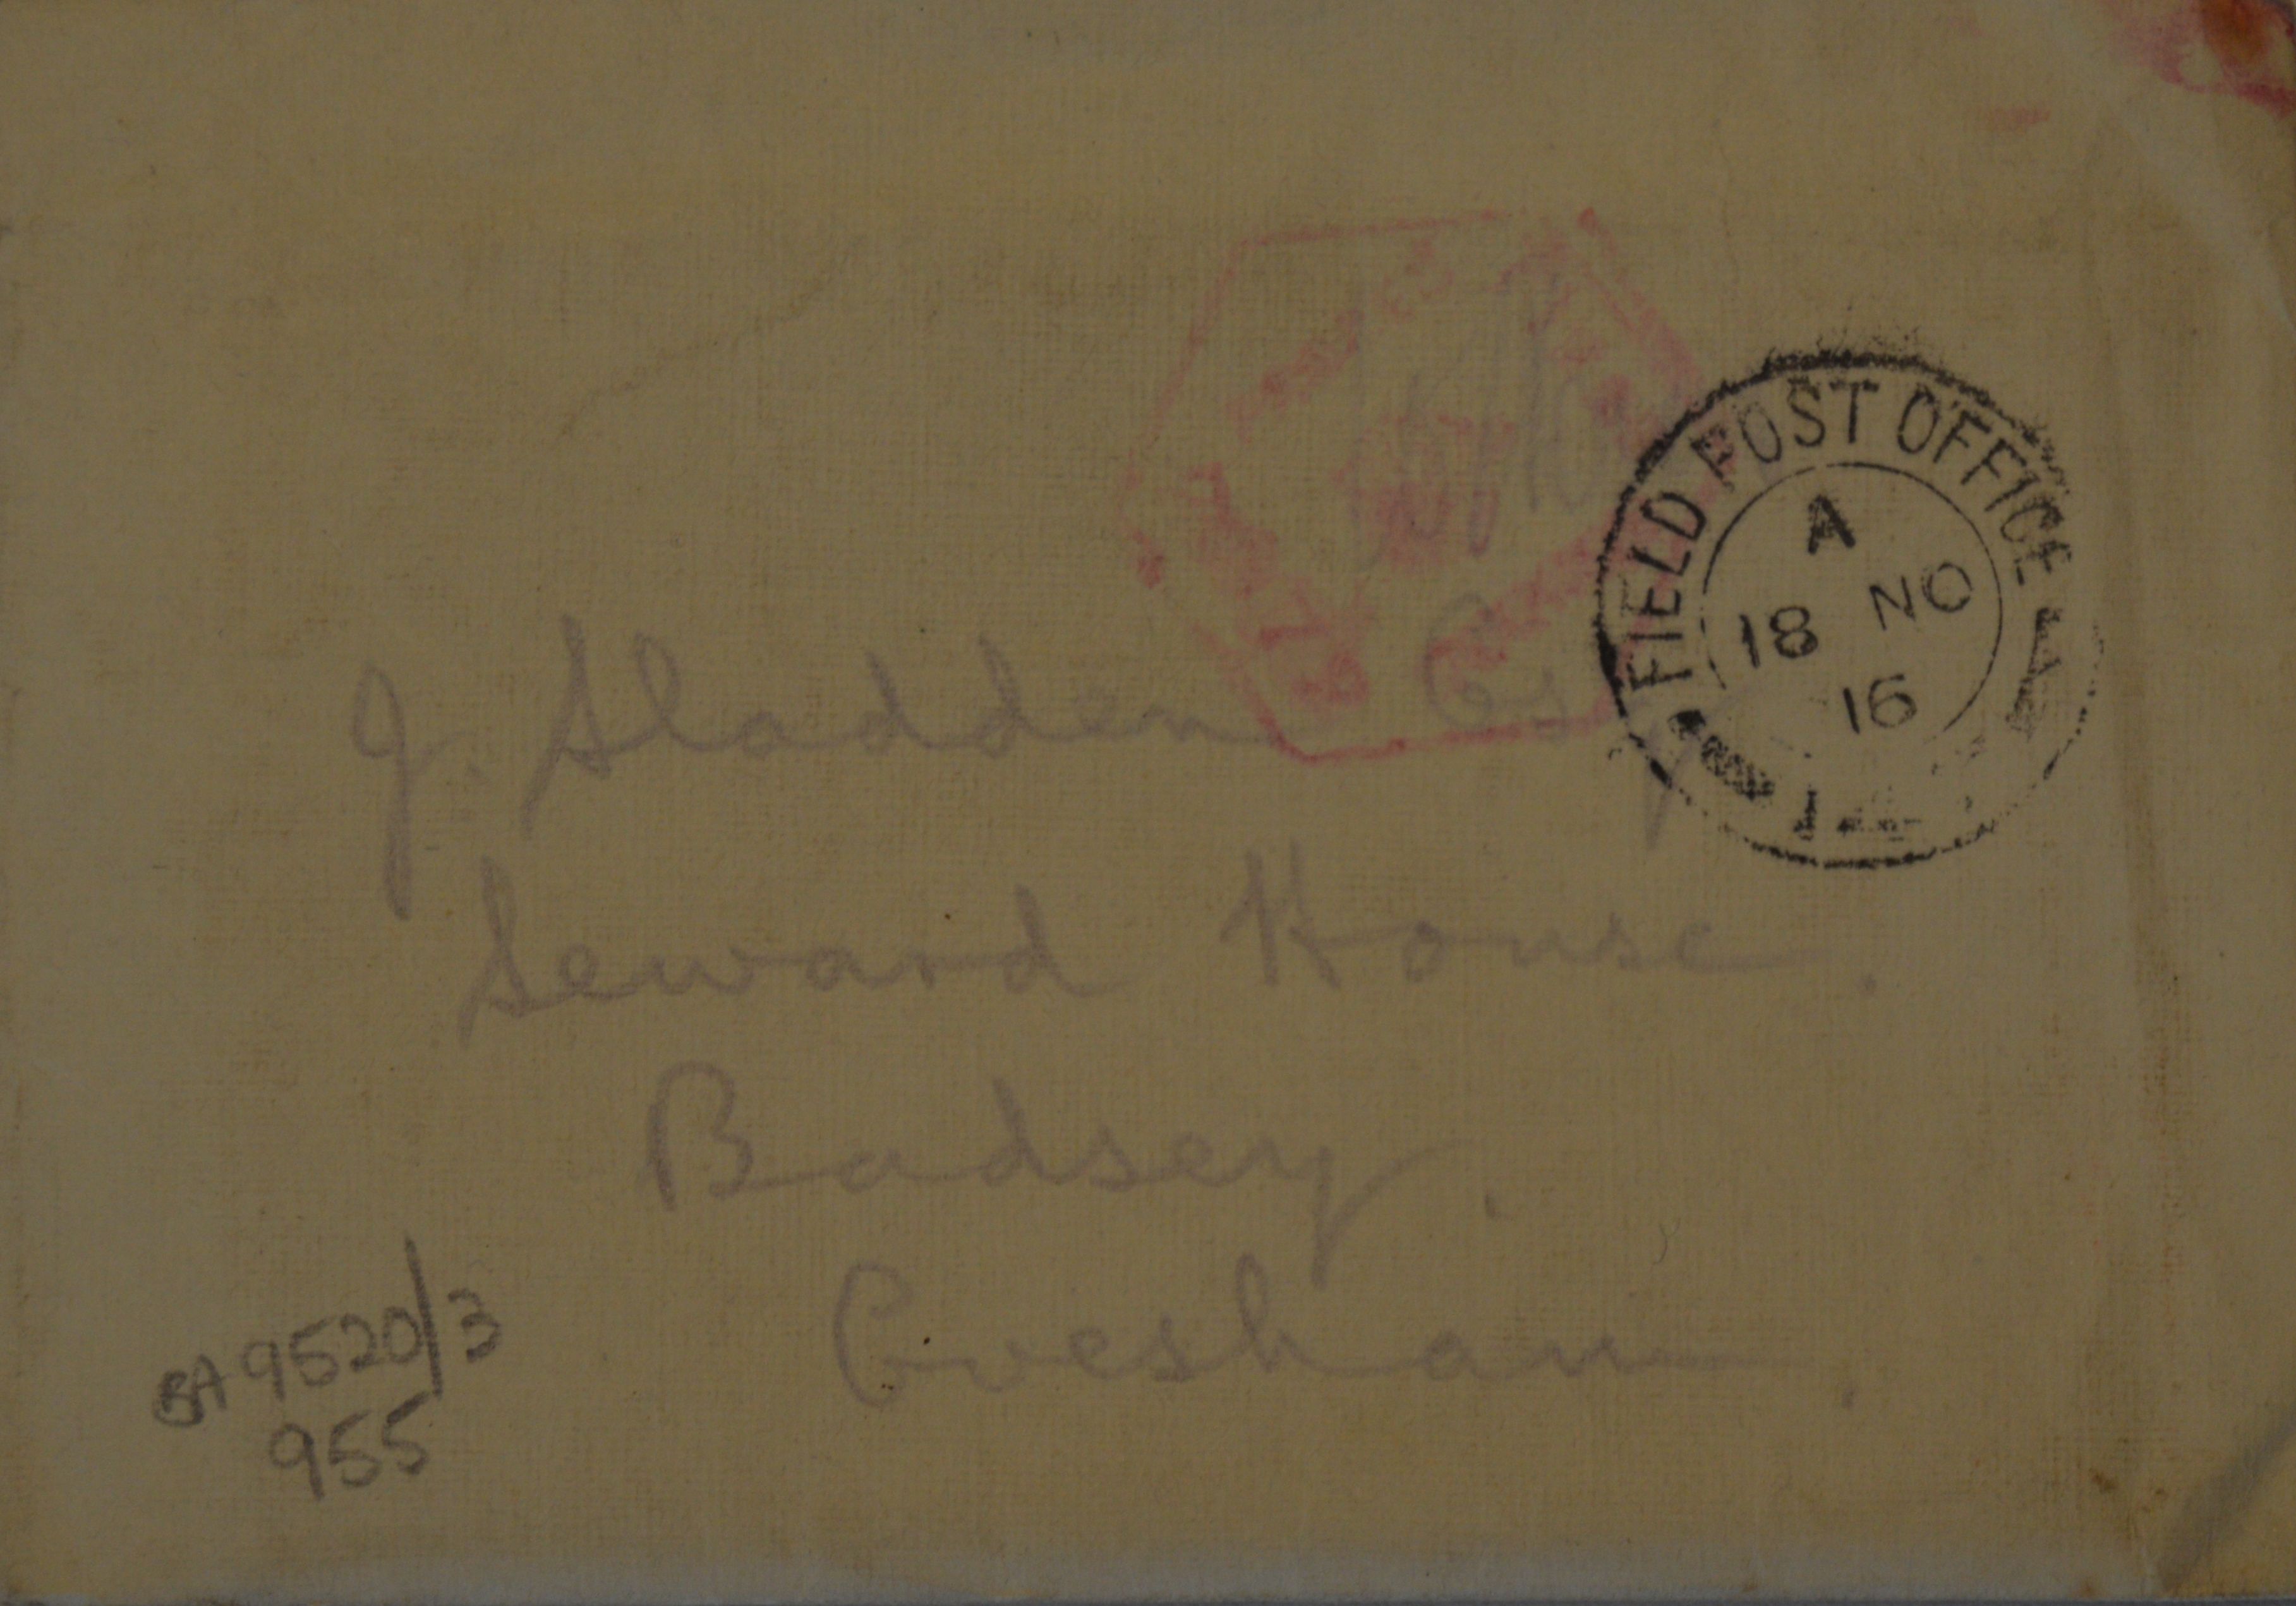 FIELD POST OFFICE
A
18 NO
16
J. Sladden Esq
Seward House.
Badsey.
Evesham.
BA 9520/3
955